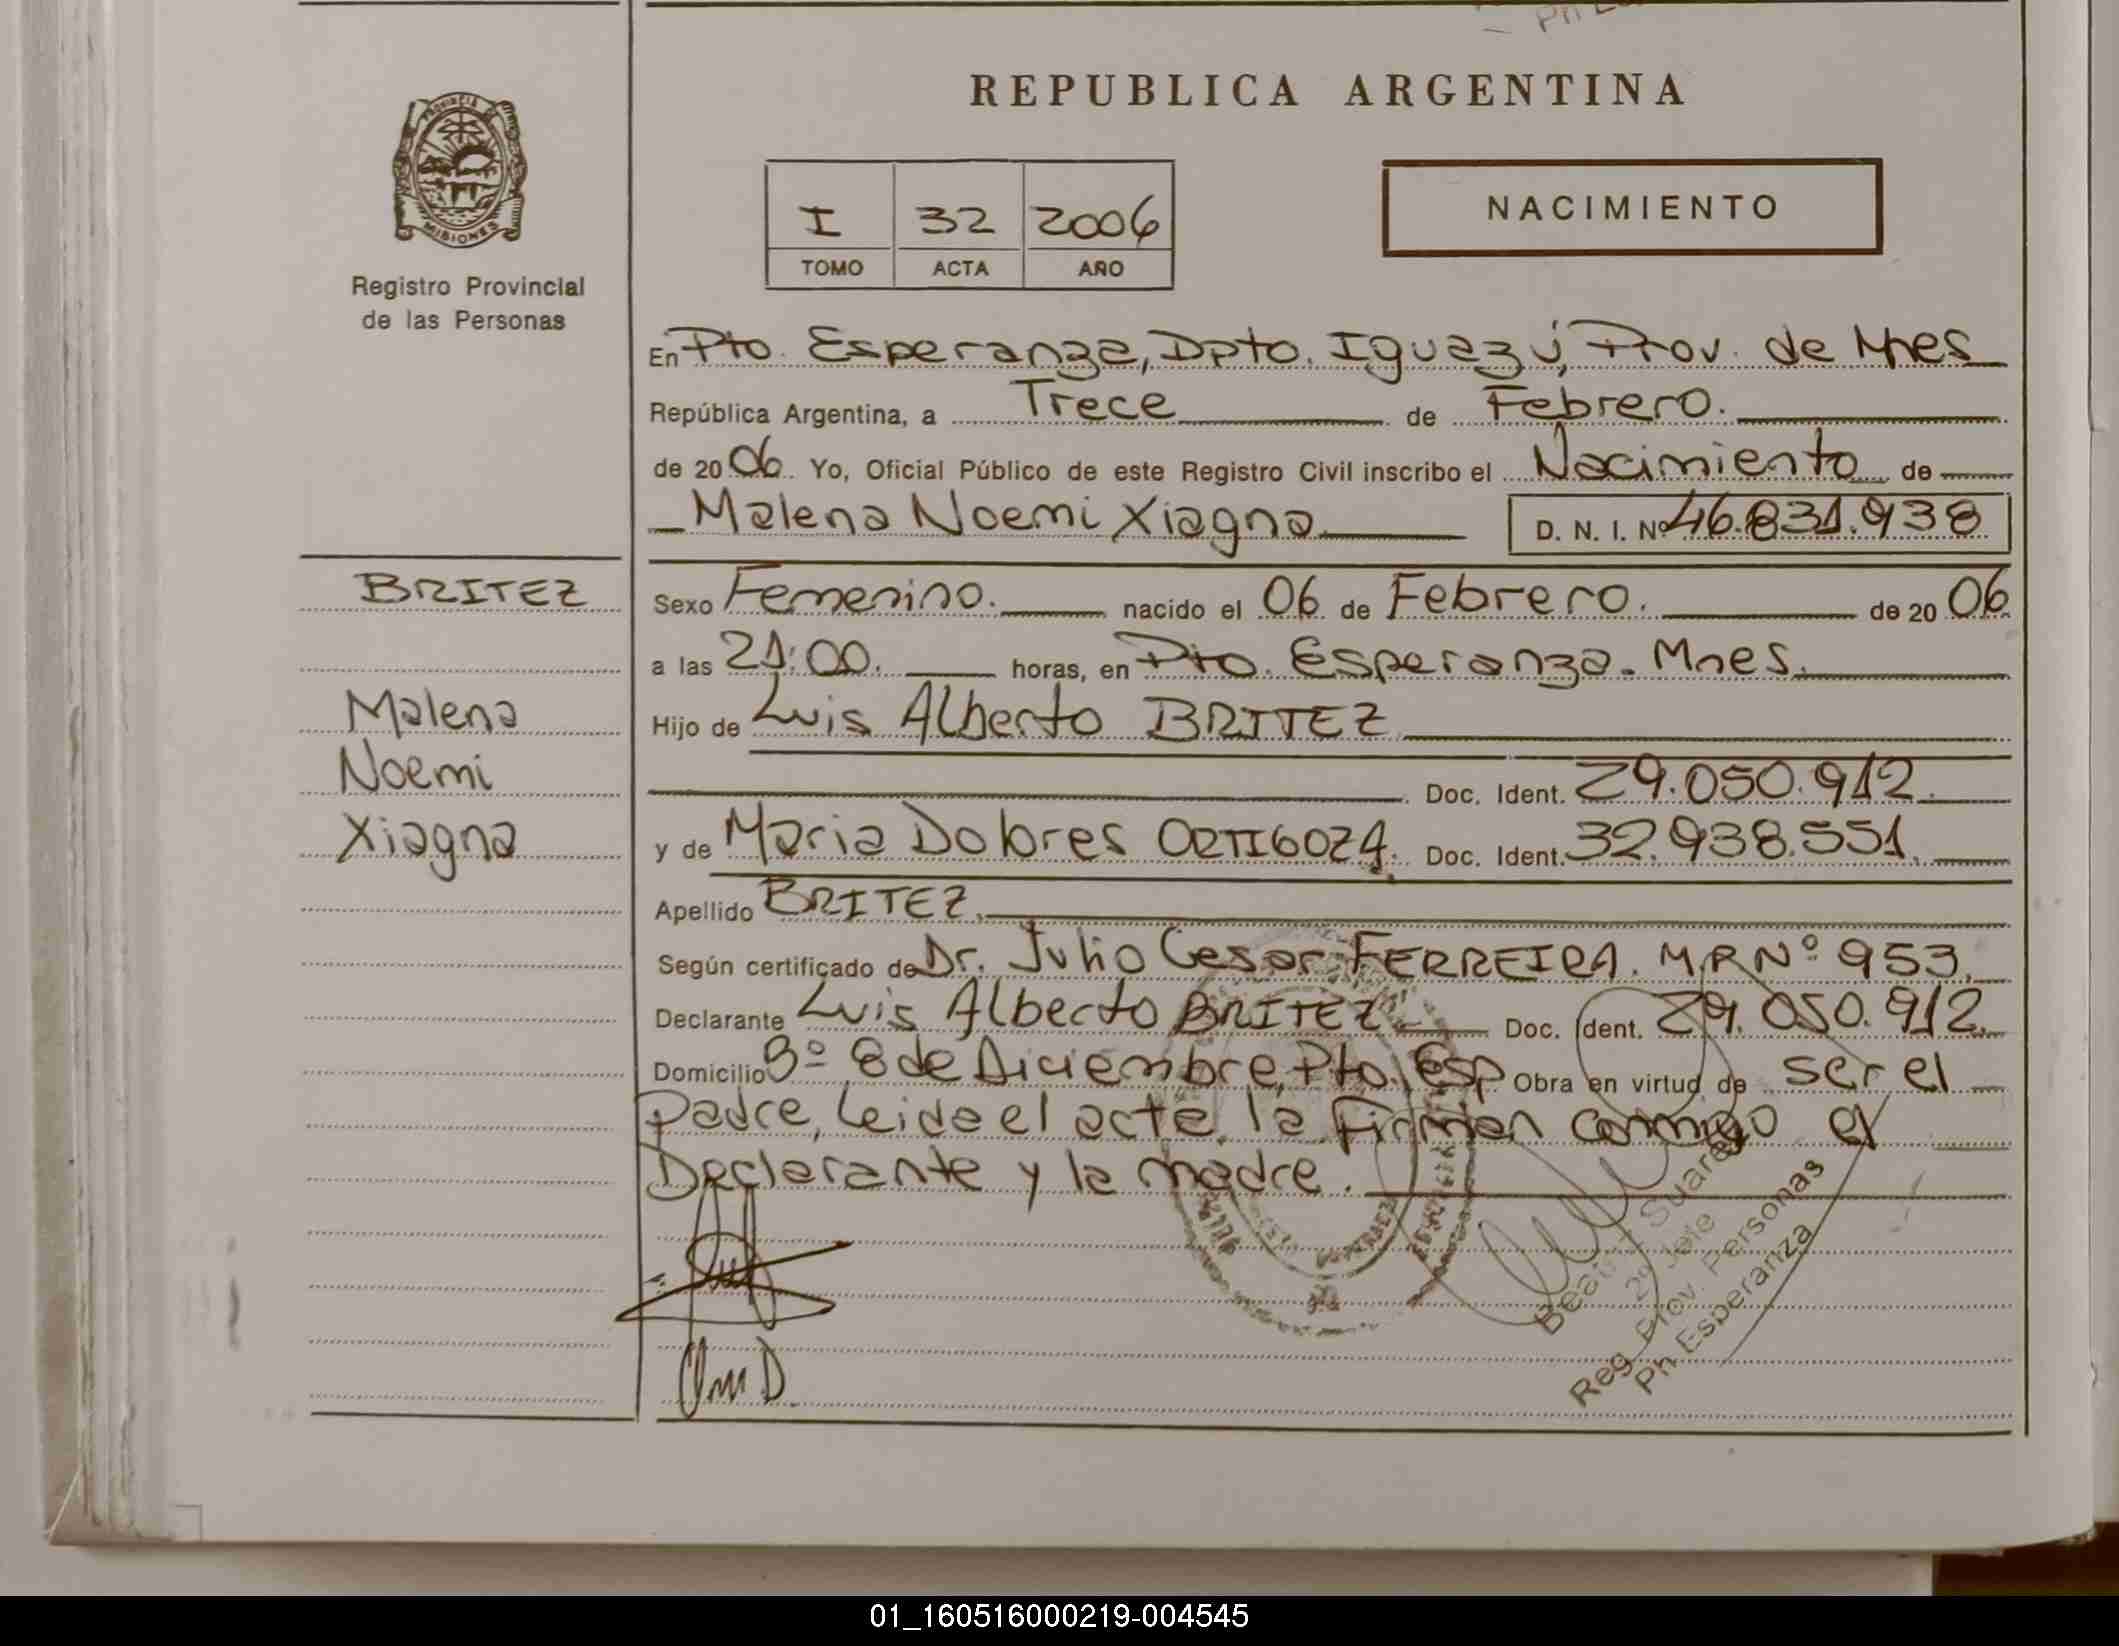 REPUBLICA ARGENTINA
PROVINCIA DE
MISIONES
Registro Provincial
de las Personas
I 32 2006
TOMO ACTA AÑO
NACIMIENTO
En Pto. Esperanza, Dpto. Iguazú, Prov. de Mnes
República Argentina, a Trece de Febrero.
de 2006 Yo, Oficial Público de este Registro Civil inscribo el Nacimiento de
Malena Noemi Xiagna D. N. I. Nº 46.831.938
BRITEZ
Malena
Noemi
Xiagna
Sexo Femenino. nacido el 06 de Febrero. de 2006
a las 21:00. horas, en Pto. Esperanza. Mnes.
Hijo de Luis Alberto BRITEZ
Doc. Ident. 29.050.912.
y de Maria Dolores ORTIGOZA. Doc. Ident. 32.938.551.
Apellido BRITEZ.
Según certificado de Dr. Julio Cesar FERREIRA. M.P. Nº 953.
Declarante Luis Alberto BRITEZ Doc. Ident. 29.050.912.
Domicilio Bº 8 de Diciembre, Pto. Esp Obra en virtud de ser el
Padre, Leida el acta, la Firman conmigo el
Declarante y la madre.
Beatriz Suarez
2º Jefe
Reg. Prov. Personas
Esperanza
01_160516000219-004545